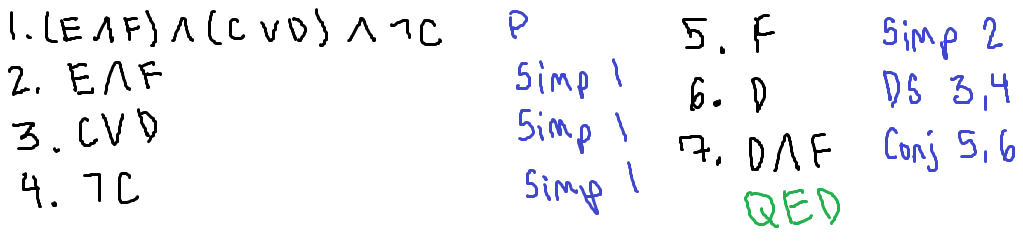 1. (E∧F) ∧ (C ∨ D) ∧ ¬C P
2. E∧F Simp 1
3. C∨D Simp 1
4. ¬C Simp 1
5. F Simp 2
6. D DS 3,4
7. D∧F Conj 5,6
QED